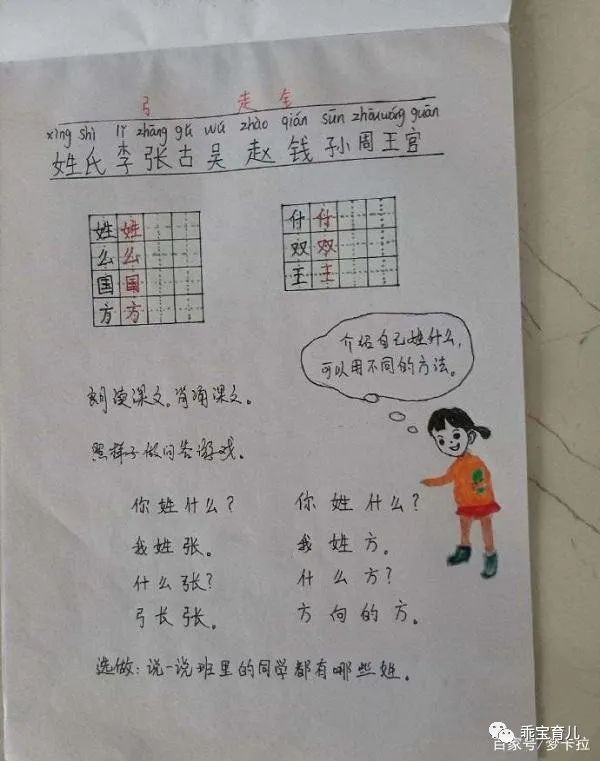 弓 走 金
xìng shì lǐ zhāng gǔ wú zhào qián sūn zhōu wáng guān
姓氏李张古吴赵钱孙周王官
姓姓 什什
么么 双双
国国 王王
方方
介绍自己姓什么，
可以用不同的方法。
朗读课文。背诵课文。
照样子做问答游戏。
你姓什么？ 你姓什么？
我姓张。 我姓方。
什么张？ 什么方？
弓长张。 方向的方。
选做：说一说班里的同学都有哪些姓。
乖宝育儿
百家号/梦卡拉